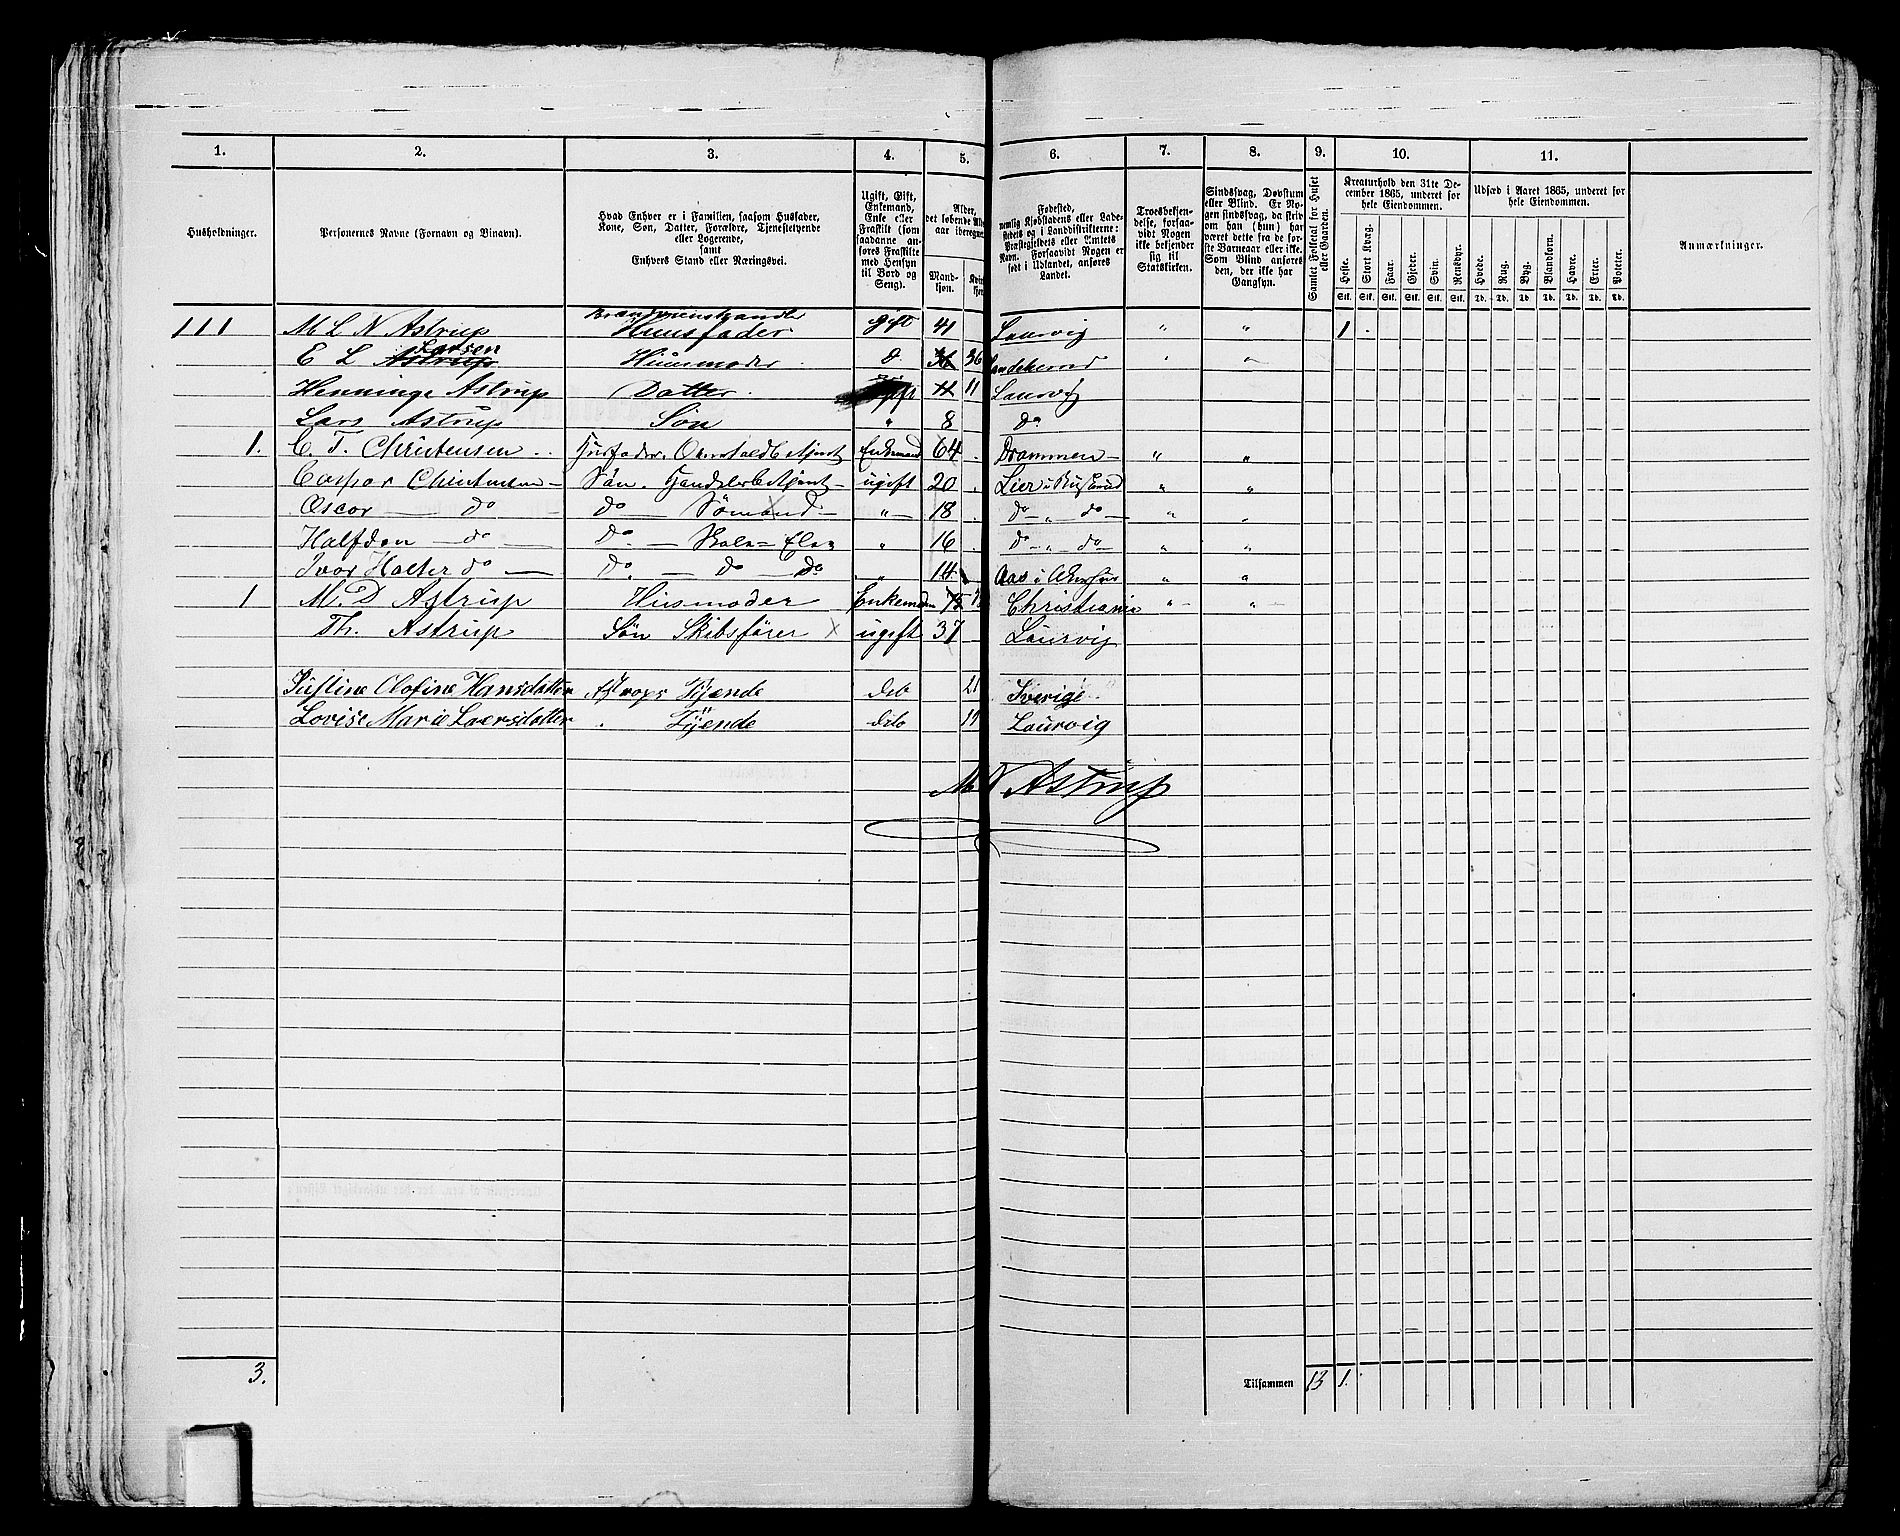 1. 2. 3. 4. 5. 6. 7. 8. 9. 10. 11.
Husholdninger.
Personernes Navne (Fornavn og Binavn).
Hvad Enhver er i Familien, saasom Husfader,
Kone, Søn, Datter, Forældre, Tjenestetyende
eller Logerende,
samt
Enhvers Stand eller Næringsvei.
Ugift, Gift,
Enkemand,
Enke eller
Fraskilt (som
saadanne an-
føres Fraskilte
med Hensyn
til Bord og
Seng).
Alder,
det løbende Al-
aar iberegnet
Mand-
kjøn.
Kvin
kjø
Fødested,
nemlig Kjøbstadens eller Lade-
stedets og i Landdistrikterne:
Præstegjeldets eller Amtets
Navn. Forsaavidt Nogen er
født i Udlandet, anføres
Landet.
Troesbekjen-
delse, forsaa-
vidt Nogen
ikke bekjender
sig til
Statskirken.
Sindssvag, Døvstum
eller Blind. Er No-
gen sindssvag, da skriv
om han (hun) har
været dette fra de før-
ste Barneaar eller ikke.
Som Blind anføres
den, der ikke har
Gangsyn.
Samlet Folketal for Huset
eller Gaarden.
Kreaturhold den 31te De-
cember 1865, underet for
hele Eiendommen.
Heste. Stort Kvæg. Faar. Gjeder. Svin. Rensdyr.
Stk. Stk. Stk. Stk. Stk. Stk.
Udsæd i Aaret 1865, underet for
hele Eiendommen.
Hvede. Rug. Byg. Blandkorn. Havre. Erter. Poteter.
Td. Td. Td. Td. Td. Td. Td.
Anmærkninger.
111 M L N Astrup Huusfader gift 41 Laurvig " " 1
Larsen
E L Astrup Huusmoder do 36 36
Henninge Astrup Datter 11 11 Laurvig
Lars Astrup Søn " 8 do
1. C. T. Christensen Husfader Enkemand 64 Drammen " "
Caspar Christensen Søn ugift 20 Lier i Buskerud " "
Oscar do do Sømand " 18 do " do " "
Halfdan do do Skole Elev " 16 do " do " "
Ivar Halter do do do do " 14 " "
1 M. D Astrup Husmoder 75 Christiania " "
Th. Astrup Søn Skibsfører x ugift 37 Laurvig
Justine Olofine Hansdatter Astrops Tjende 21 Sverige
Lovise Marie Laersdatter Tjende Laurvig
M N Astrup
3. Tilsammen 13 1.